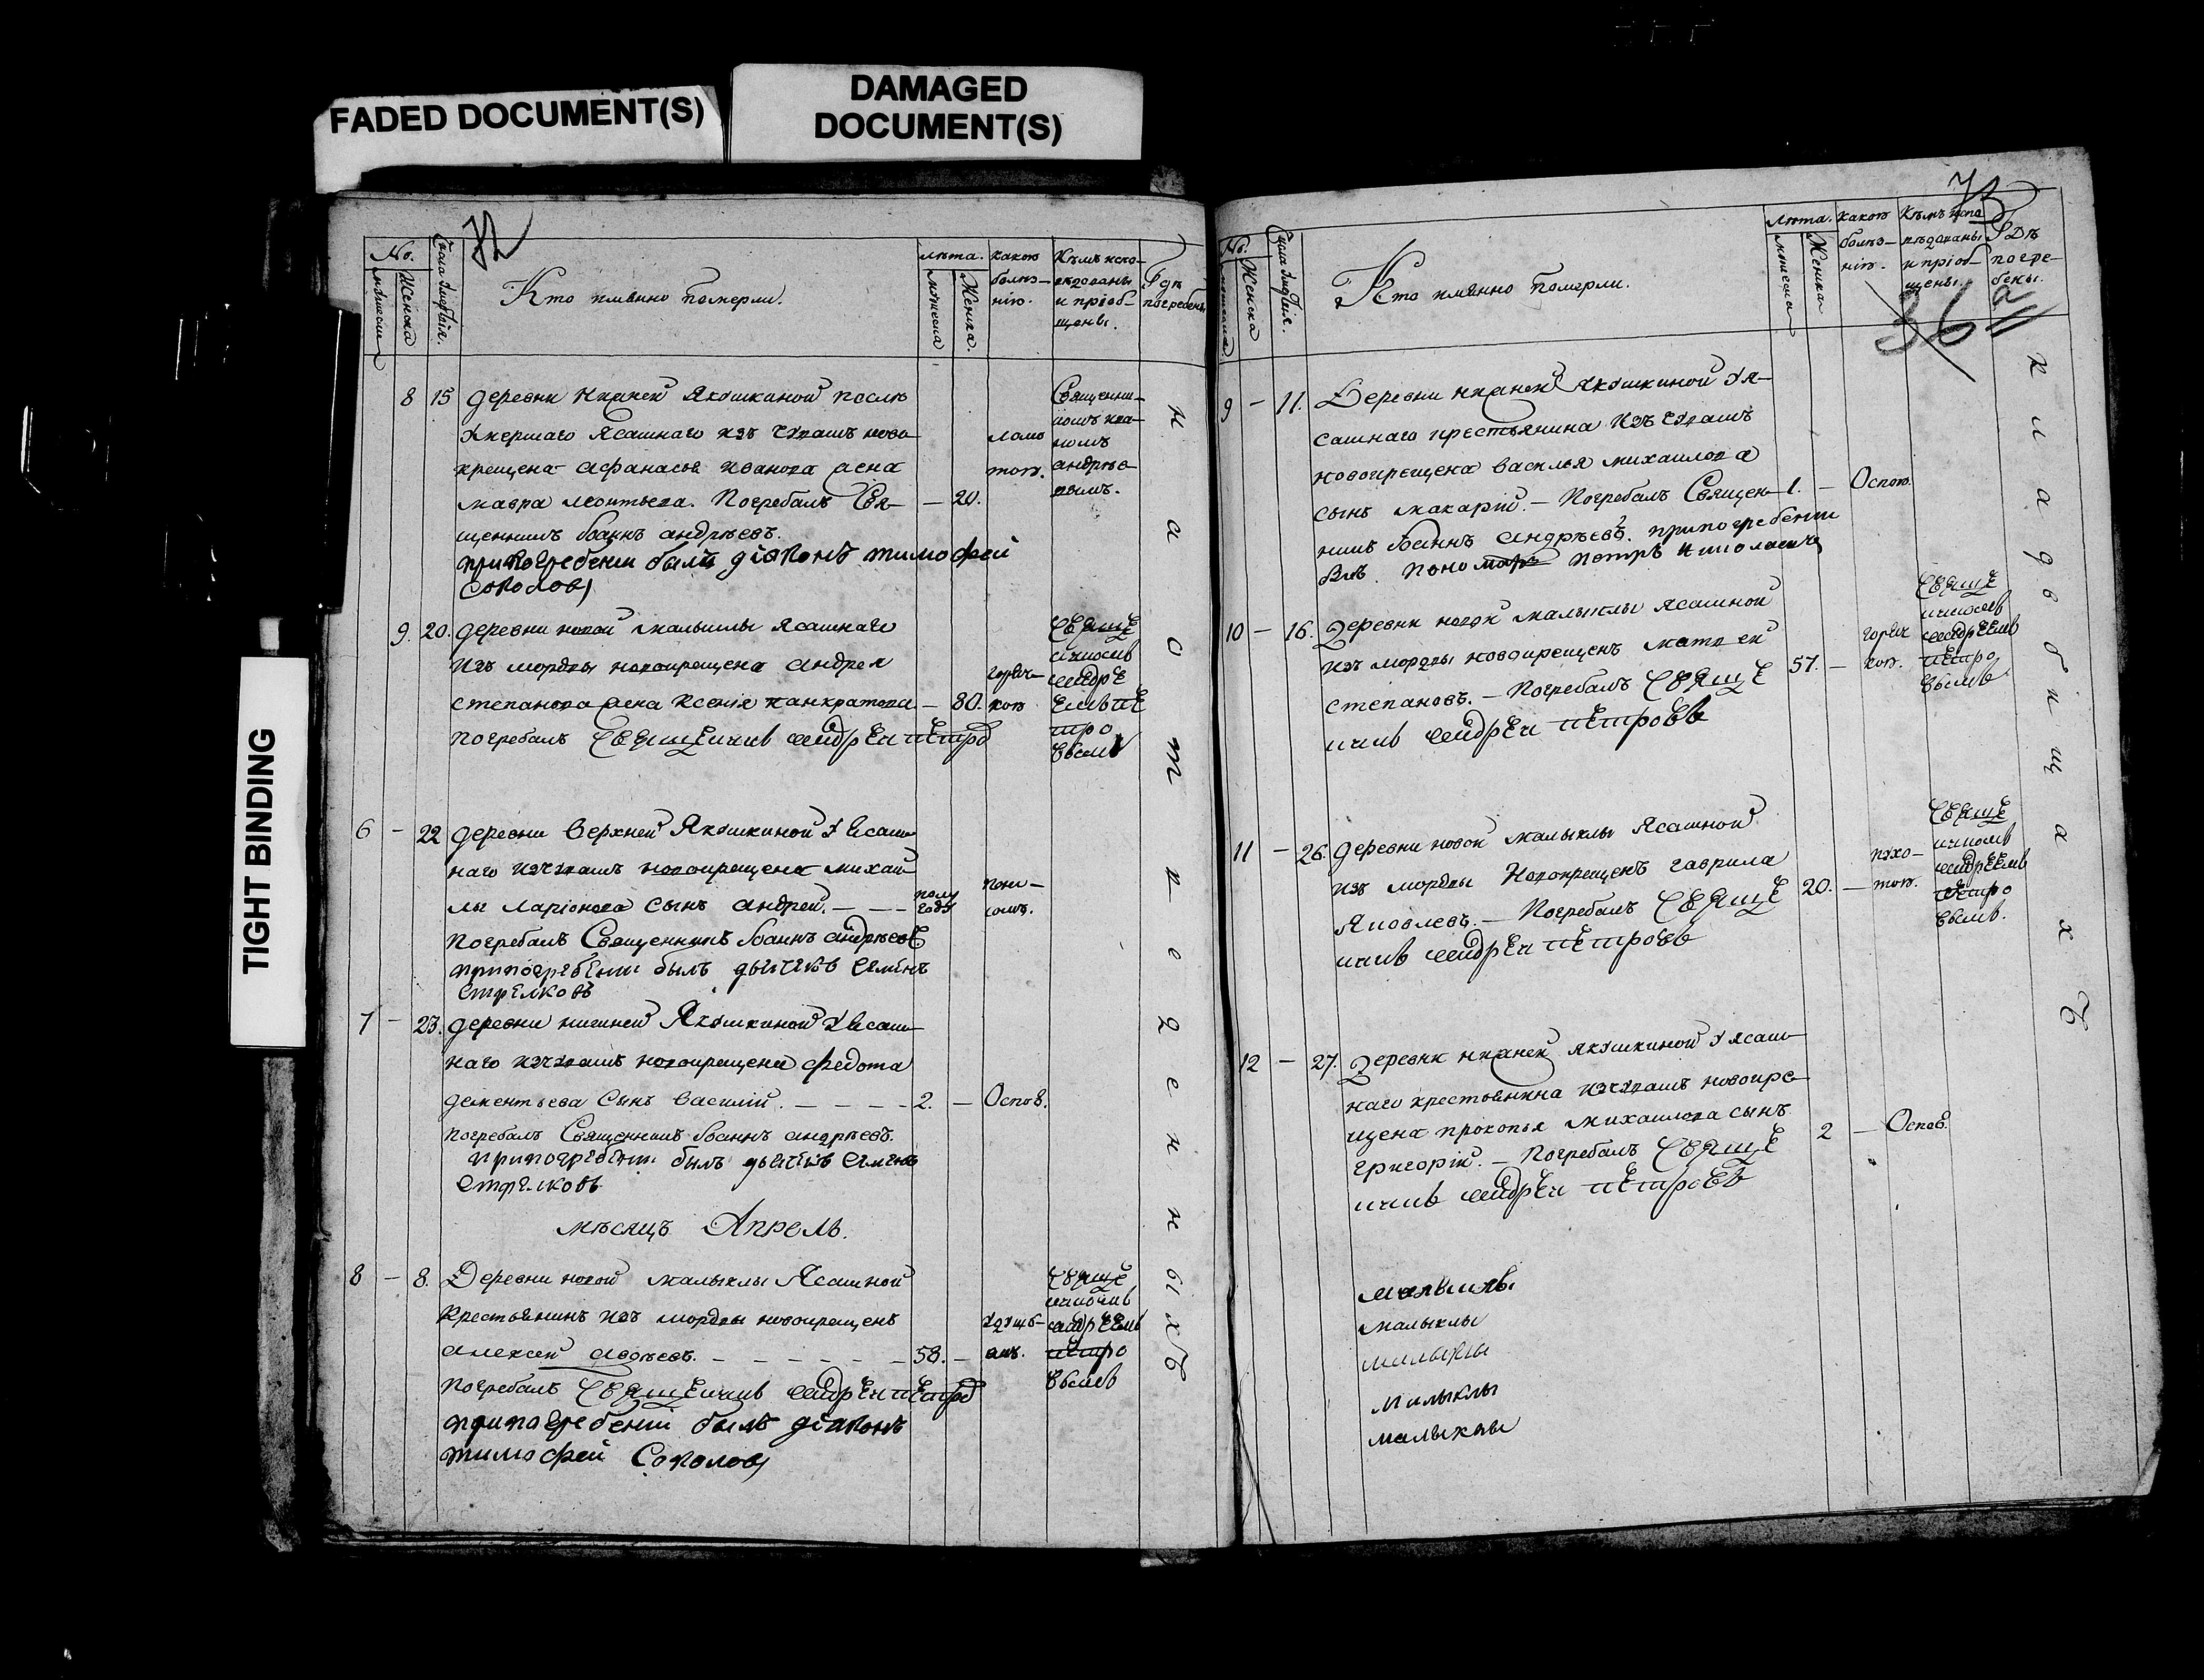 FADED DOCUMENT(S)
DAMAGED
DOCUMENT(S)
TIGHT BINDING
72
No.
Мужеска
Женска
Число днѣвнія.
Кто имянно померли.
лѣта.
мужеска
Женска.
какою
болѣз-
нію.
Кѣмъ испо-
вѣдованы
и пріоб-
щены.
Гдѣ
погребены
8 15 деревни Нижней Якушкиной послѣ
умершаго Ясашнаго изъ чувашъ ново-
крещена Афанасья Иванова жена
мавра леонтьева. Погребалъ Свя- — 20.
щенникъ Іоаннъ андрѣевъ.
припогребении былъ діаконъ тимофей
Соколовъ
ломо
тою.
Священни-
комъ ива-
номъ
андрѣе-
вымъ.
9. 20. деревни новой малыклы ясашнаго
изъ мордвы новокрещена андрея
степанова жена Ксенія панкратова — 80.
погребалъ Священникъ андрей петро
горяч-
кою
Священ
никомъ
андре
емъ пе
тро
вымъ
6 — 22 деревни Верхней Якушкиной у Ясаш-
наго изчувашъ новокрещена михай-
лы Ларіонова сынъ андрей. — — — полу
году
поно-
сомъ.
погребалъ Священникъ Іоаннъ андрѣевъ
припогребении былъ дьячекъ Семенъ
Стрелковъ
7 — 23. деревни нижней Якушкиной у Ясаш-
наго изчувашъ новокрещена федота
дементьева сынъ василий. — — — — 2. — Оспою.
погребалъ Священникъ Іоаннъ андрѣевъ.
припогребении былъ дьячекъ Семенъ
Стрелковъ
мѣсяцъ Апрель.
8 — 8. Деревни новой малыклы Ясашной
Крестьянинъ изъ мордвы новокрещенъ
алексей авдѣевъ. — — — — — — 58. —
погребалъ Священникъ андрей петро
припогребении былъ діаконъ
тимофей Соколовъ
удушь-
емъ.
Священ
никомъ
андреемъ
петро
вымъ
н а о т в е д е н н ы х ъ
73
36 а
No.
Мужеска
Женска
Число днѣвнія.
Кто имянно померли.
лѣта.
мужеска
Женска
какою
болѣз-
нію.
Кѣмъ испо
вѣдованы
и пріоб-
щены.
Гдѣ
погре-
бены.
9 — 11. Деревни нижней якушкиной у я-
сашнаго крестьянина изъ чувашъ
новокрещена василья михаилова
сынъ макарий. — Погребалъ Священ- 1. — Оспою.
никъ Іоаннъ андрѣевъ. припогребении
былъ пономарь петръ николаевъ
10 — 16. Деревни новой малыклы ясашной
изъ мордвы новокрещенъ матвей
степановъ. — Погребалъ Священ 57. —
никъ андрей петровъ
горяч
кою.
Священ
никомъ
андреемъ
петро
вымъ
11 — 26. Деревни новой малыклы Ясашной
изъ мордвы Новокрещенъ гаврила
Яковлевъ. — Погребалъ Священ 20. —
никъ андрей петровъ
Священ
никомъ
андреемъ
петро
вымъ.
12 — 27. Деревни нижней якушкиной у ясаш-
наго крестьянина изчувашъ новокре-
щена прокопья михаилова сынъ
григорій. — Погребалъ Священ 2 — Оспою.
никъ андрей петровъ
малыклы
малыклы
малыклы
малыклы
малыклы
к л а д б и щ а х ъ